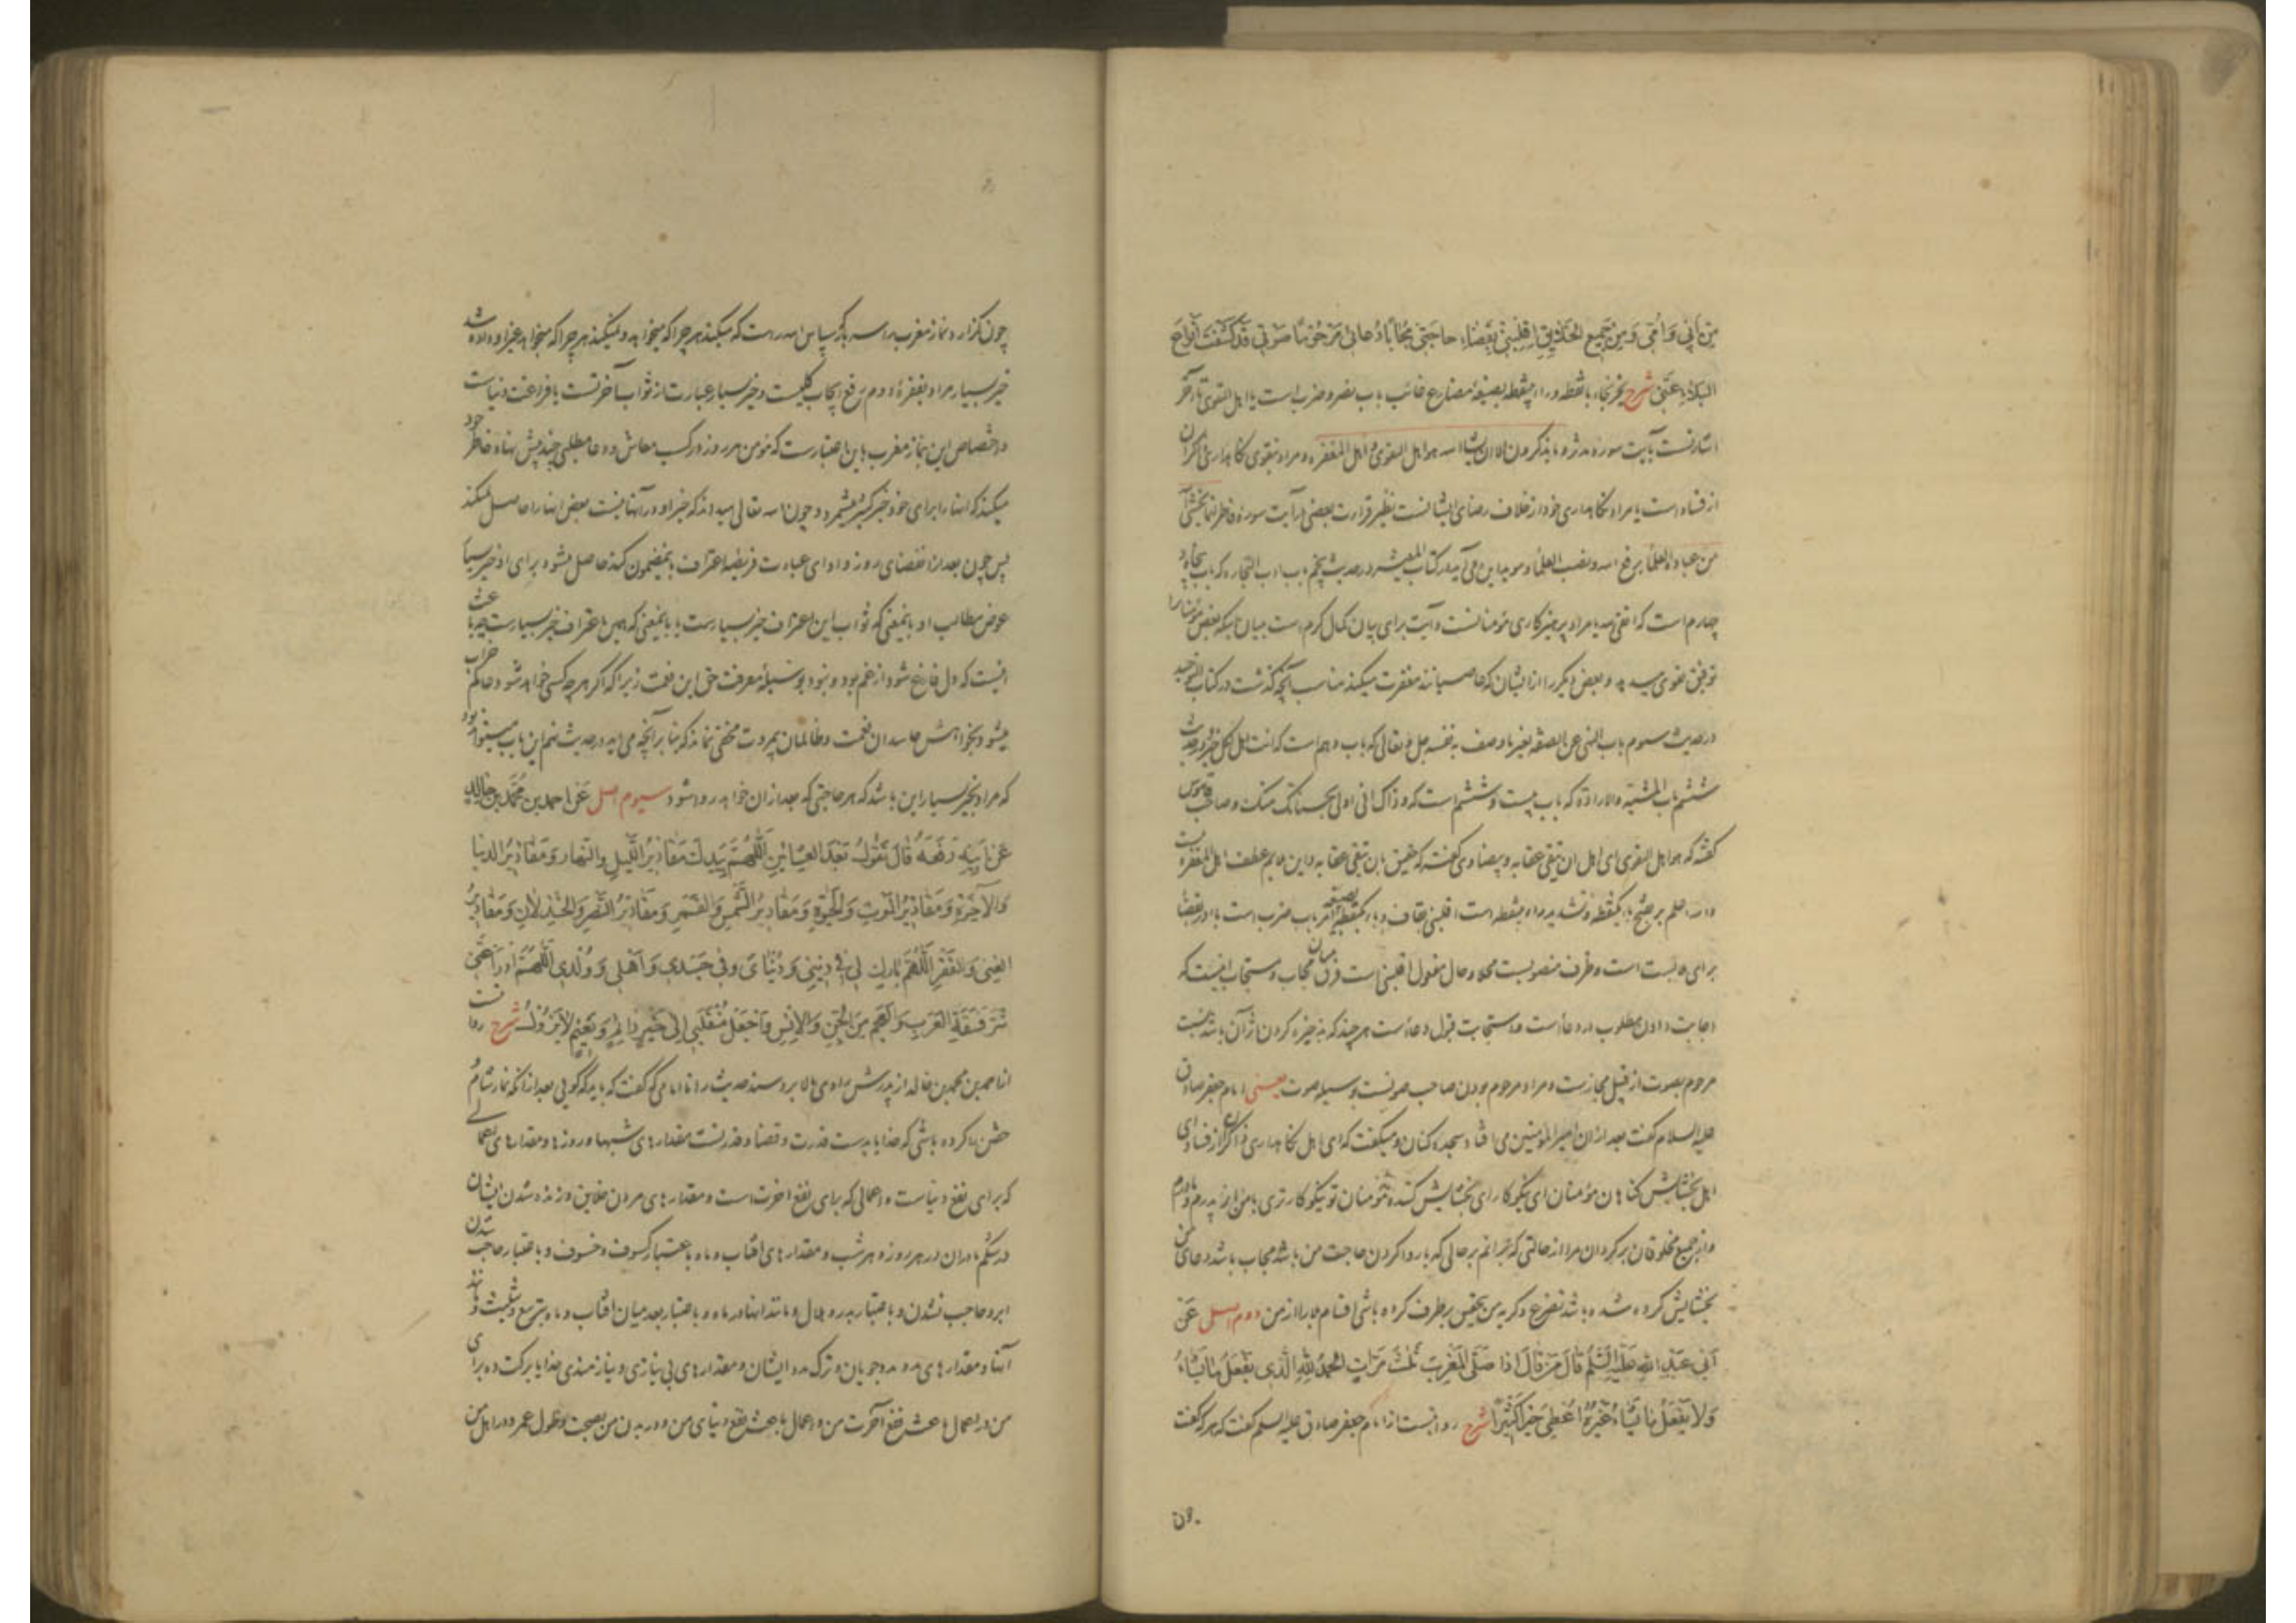 مِنْ اَبِي وَاُمِّي وَمِنْ جَمِيعِ الْخَلَائِقِ اِقْلِبْنِي بِقَضَاءِ حَاجَتِي مُجَابًا دُعَائِي مَرْحُومًا صَوْتِي قَدْ كَشَفْتَ اَنْوَاعَ
الْبَلَاءِ عَنِّي شرح بصیغهٔ مضارع غائب باب نصر و ضرب است یا اهل التقوی تا آخر
اشارتست بآیت سورهٔ مدثر وما یذکرون الا ان یشاء الله هو اهل التقوی و اهل المغفرة و مراد بتقوی نگاهداری
از فساد است یا مراد نگاهداری خود از خلاف رضای ایشانست نظیر قراءت بعضی در آیت سورهٔ فاطر انما یخشی
من عباده العلماء برفع الله و نصب العلماء و موید این می آید در کتاب المعیشه در حدیث پنجم باب ادب التجاره که باب پنجاه و
چهارم است که اتقی الله یا مراد پرهیزکاری مؤمنانست و آیت برای بیان کمال کرم است میان اینکه بعض مؤمنان را
توفیق تقوی میدهد و بعض دیگر را از ایشان که عاصیانند مغفرت میکند مناسب آنچه گذشت در کتاب التوحید
در حدیث سیوم باب النهی عن الصفة بغیر ما وصف به نفسه جل و تعالی که باب دهم است که انت لکل خیر و در حدیث
ششم باب المشیة والارادة که باب بیست و ششم است که و ذاک انی اولی بحسناتک منک و صاحب قاموس
گفته که هو اهل التقوی ای اهل ان یتقی عقابه و بیضاوی گفته که حقیق بان یتقی عقابه و این ملایم عطف اهل المغفرة نیست
است اقلبنی بقاف و باء یکنقطه بصیغه امر باب ضرب است باء در بقضاء
برای ملابست است و ظرف منصوبست محلا و حال مفعول اقلبنی است فرق میان مجاب و مستجاب اینست که
اجابت دادن مطلوب در دعاست و استجابت قبول دعاست هر چند که بذخیره کردن اثر آن باشد نسبت
مرحوم بصوت از قبیل مجازست و مراد مرحوم بودن صاحب صوتست بوسیلهٔ صوت یعنی امام جعفر صادق
علیه السلام گفت بعد از ان امیر المؤمنین می افتاد سجده کنان و میگفت که ای اهل نگاهداری ذاکران از فساد ای
اهل بخشایش گناهان مؤمنان ای نیکوکار ای بخشایش کننده مؤمنان تو نیکوکارتری با من از پدرم و مادرم
و از جمیع مخلوقان برگردان مرا از حالتی که در آنم بر حالی که با روا کردن حاجت من باشد مجاب باشد دعای من
بخشایش کرده شده باشد تضرع و گریهٔ من بتحقیق برطرف کرده باشی اقسام بلا را از من دوم اصل عَنْ
اَبِي عَبْدِ اللهِ عَلَيْهِ السَّلَمُ قَالَ مَنْ قَالَ اِذَا صَلَّى الْمَغْرِبَ ثَلٰثَ مَرَّاتٍ اَلْحَمْدُ لِلّٰهِ الَّذِي يَفْعَلُ مَا يَشَاءُ
وَلَا يَفْعَلُ مَا يَشَاءُ غَيْرُهُ اُعْطِيَ خَيْرًا كَثِيرًا شرح روایتست از امام جعفر صادق علیه السلم گفت که هر که گفت
چون
چون گزارد نماز مغرب را سه بار که سپاس الله راست که میکند هر چه را که میخواهد و نمیکند هر چه را که میخواهد غیر او داده شد
خیر بسیار مراد بفقرهٔ دوم رفع ایجاب کلیست و خیر بسیار عبارت از ثواب آخرتست با فراغت دنیاست
و اختصاص این بنماز مغرب باین اعتبارست که مؤمن هر روز در کسب معاش و دعا مطلبی چند پیش نهاد خاطر خود
میکند که انها را برای خود خیر کثیر میشمرد و چون الله تعالی میداند که خیر او در آنها نیست بعض انها را حاصل نمیکند
پس چون بعد از انقضای روز و ادای عبادت فریضه اعتراف باینمضمون کند حاصل میشود برای او خیر بسیار
عوض مطالب او باینمعنی که ثواب این اعتراف خیر بسیارست یا باینمعنی که همین اعتراف خیر بسیارست چه باعث
انیست که دل فارغ شود از غم بود و نبود بوسیلهٔ معرفت حق این نعمت زیرا که اگر هر چه کسی خواهد شود عالم خراب
میشود بخواهش حاسدان نعمت و ظالمان بیمروت مخفی نماند که بنا بر آنچه می آید در حدیث نهم این باب میتواند بود
که مراد بخیر بسیار این باشد که هر حاجتی که بعد از ان خواهد روا شود سیوم اصل عَنْ احمد بن مُحَمَّدِ بن خَالِدٍ
عَنْ اَبِيهِ رَفَعَهُ قَالَ تَقُولُ بَعْدَ الْعِشَائَيْنِ اَللّٰهُمَّ بِيَدِكَ مَقَادِيرُ اللَّيْلِ وَالنَّهَارِ وَمَقَادِيرُ الدُّنْيَا
وَالْآخِرَةِ وَمَقَادِيرُ الْمَوْتِ وَالْحَيٰوةِ وَمَقَادِيرُ الشَّمْسِ وَالْقَمَرِ وَمَقَادِيرُ النَّصْرِ وَالْخِذْلَانِ وَمَقَادِيرُ
الْغِنَى وَالْفَقْرِ اَللّٰهُمَّ بَارِكْ لِي فِي دِينِي وَدُنْيَايَ وَفِي جَسَدِي وَاَهْلِي وَوُلْدِي اَللّٰهُمَّ ادْرَأْ عَنِّي
شَرَّ فَسَقَةِ الْعَرَبِ وَالْعَجَمِ مِنَ الْجِنِّ وَالْاِنْسِ وَاجْعَلْ مُنْقَلَبِي اِلَى خَيْرٍ دَائِمٍ وَنَعِيمٍ لَا يَزُولُ شرح روایتست
از احمد بن محمد بن خالد از پدرش راوی بالا برد سند حدیث را تا امامی که گفت که باید که گویی بعد از انکه نماز شام و
خفتن را کرده باشی که خدایا بدست قدرت و قضا و قدر تست مقدارهای شبها و روزها و مقدارهای اعمالی
که برای نفع دنیاست و اعمالی که برای نفع اخرت است و مقدارهای مردن خلایق و زنده شدن ایشان
در شکم مادران در هر روز و هر شب و مقدارهای افتاب و ماه باعتبار کسوف و خسوف و باعتبار حاجب شدن
ابر و حاجب نشدن و باعتبار بدر و هلال و مانند اینها در ماه و باعتبار بعد میان افتاب و ماه بتربیع و تثلیث و مانند
آنها و مقدارهای مدد مددجویان و ترک مدد ایشان و مقدارهای بی نیازی و نیازمندی خدایا برکت ده برای
من در اعمال باعث نفع آخرت من و اعمال باعث نفع دنیای من و در بدن من بصحت و طول عمر و در اهل من